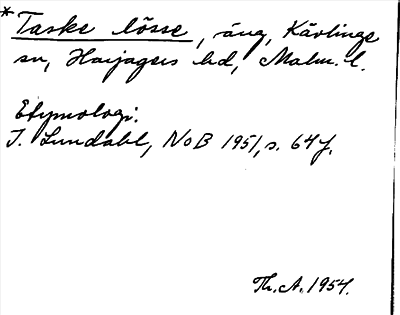 * Taske lösse, äng, Kävlinge
sn, Harjagers hd, Malm. l.
Etymologi:
I. Lundahl, NoB 1951, s. 64 f.
Th. A. 1954.